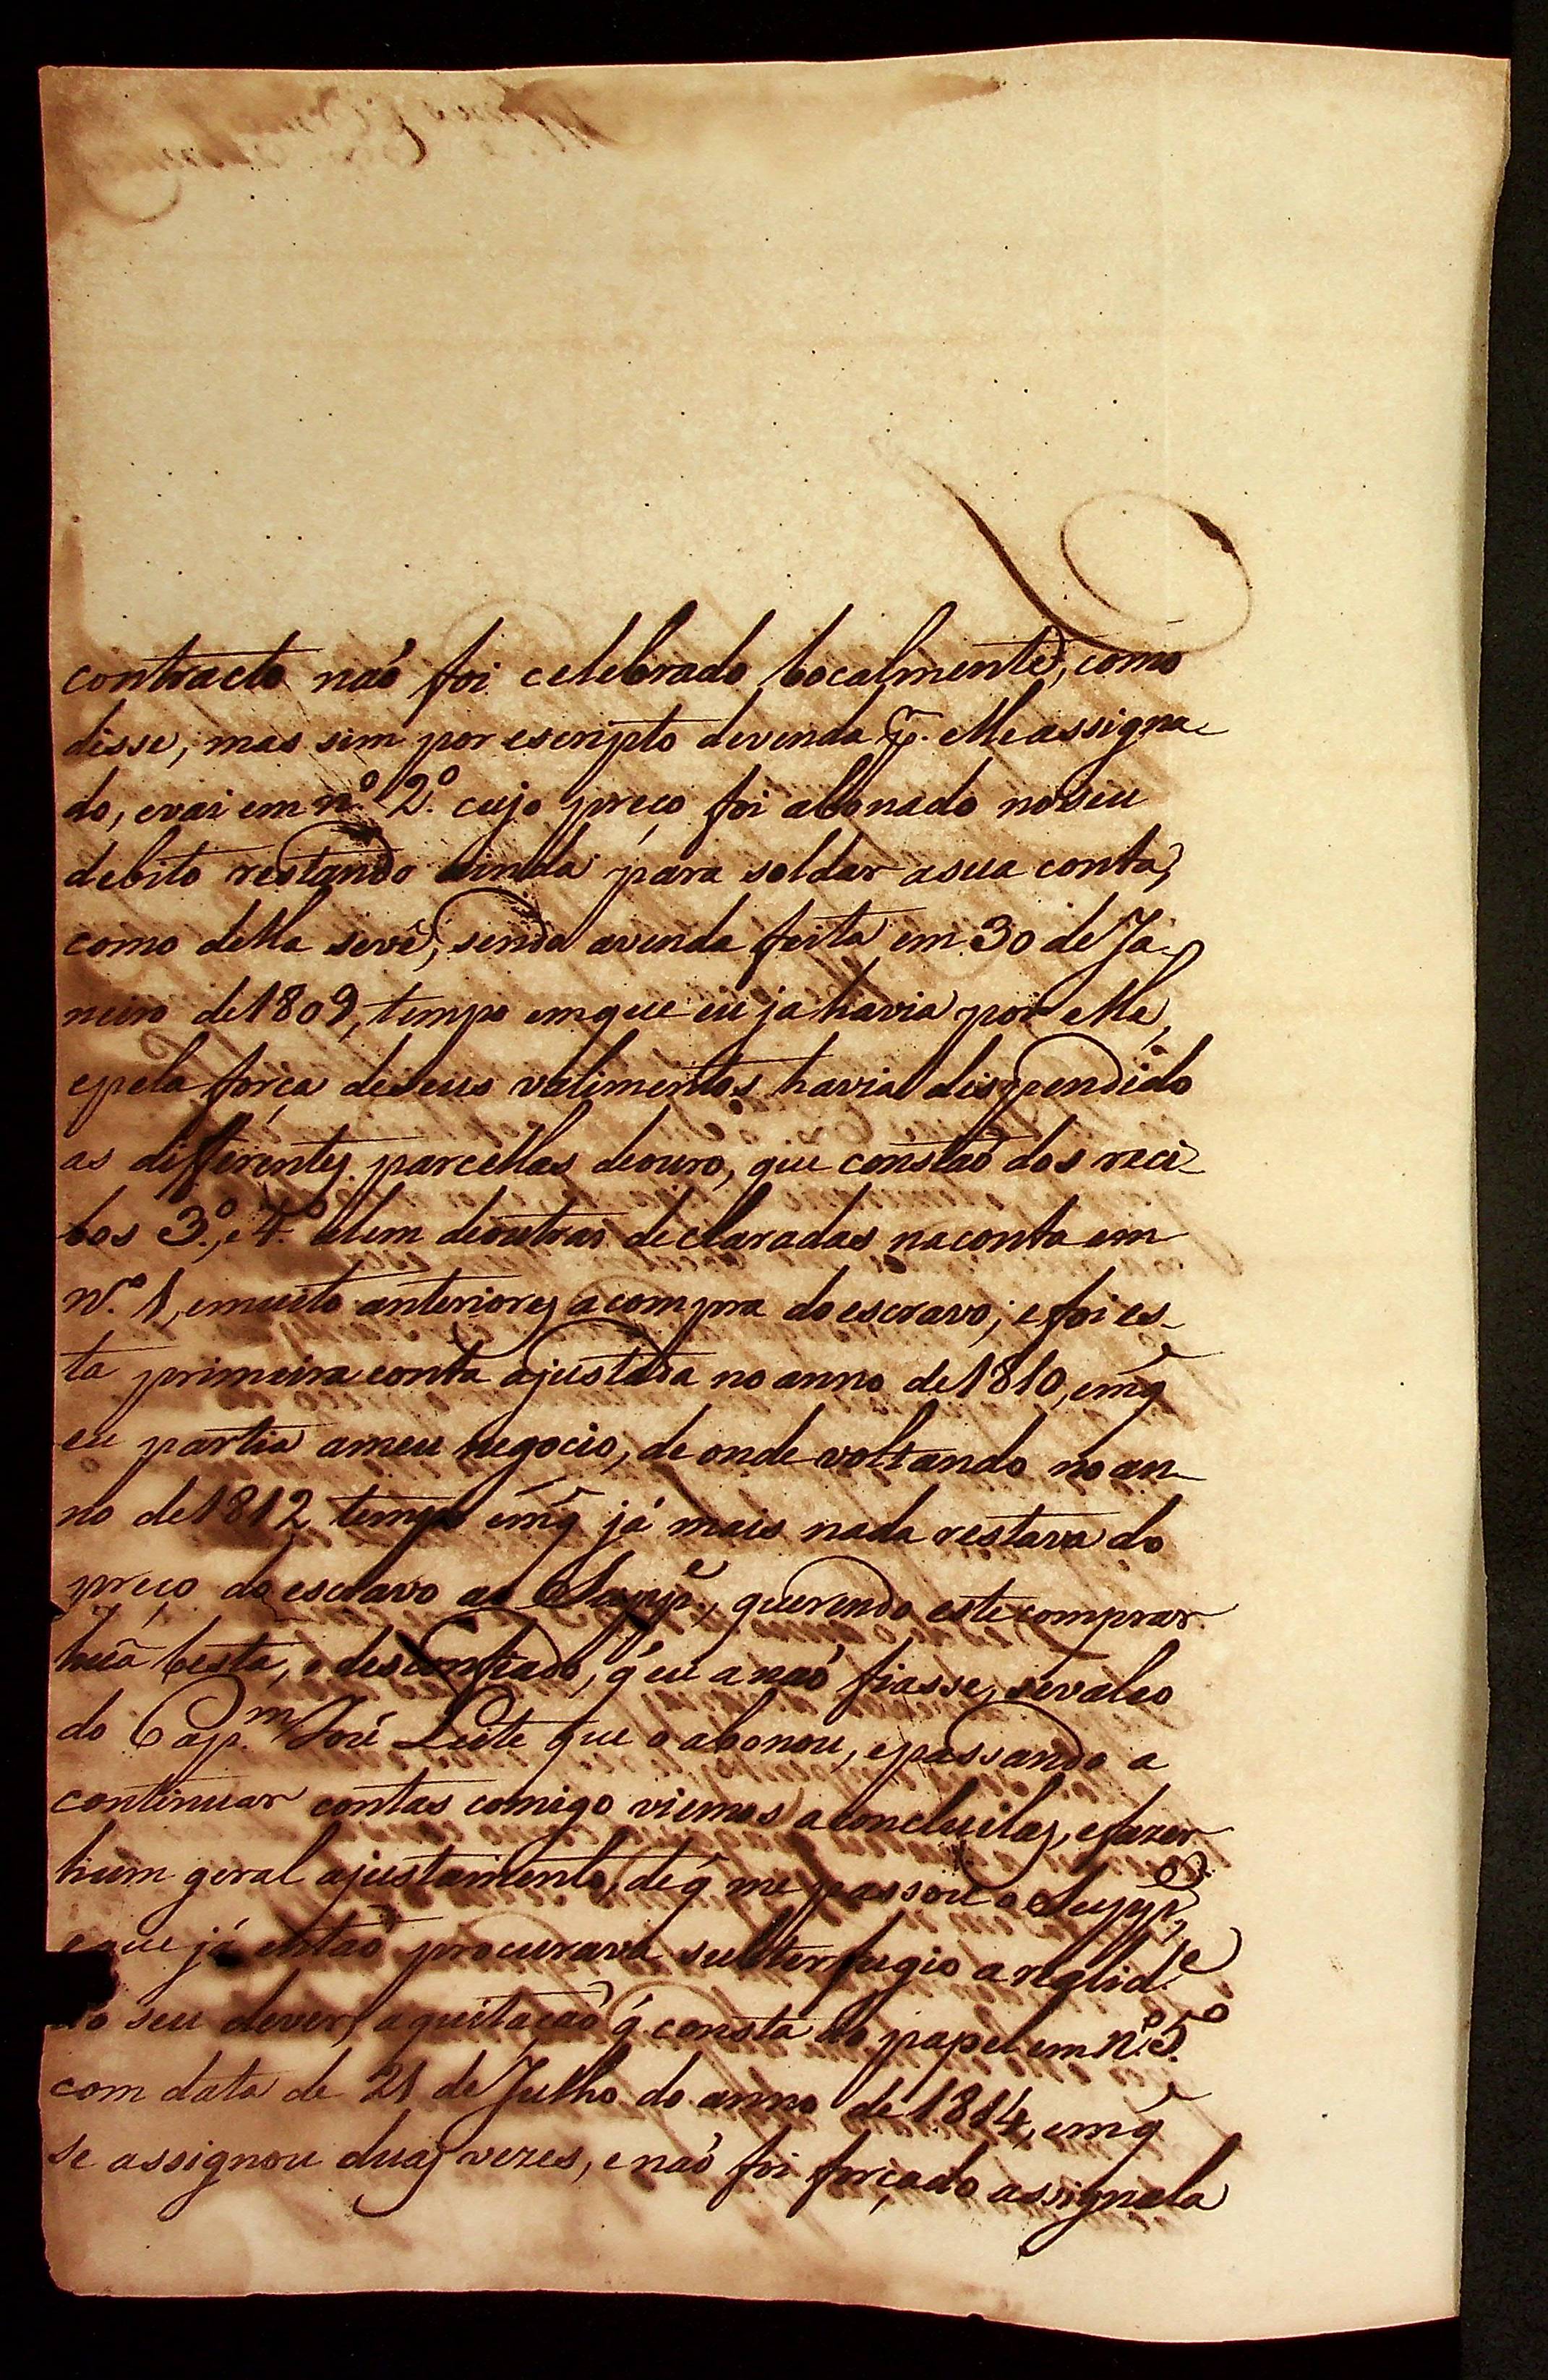 contracto naõ foi celebrado bocalmente, como
disse, mas sim por escripto devenda p. elle assigna-
do, evai em nº 2º. cujo preço foi abonado noseu
debito restando ainda para soldar asua conta,
como della sevê, sendo avenda feita em 30 de Ja-
neiro de 1809, tempo emque eu ja havia por elle,
epela força deseus valimentos havia dispendido
as differentes parcellas deouro, que constaõ dos reci-
bos 3º., e 4º. alem deoutras declaradas naconta em
Nº. 1, emuito anteriores acompra doescravo; e foi es-
ta primeira conta ajustada no anno de 1810, emq̃
eu partia ameu negocio, de onde voltando no an-
no de 1812 tempo emq̃ já mais nada restava do
preço do escravo ao Suppe., querendo este comprar
huã besta, e desconfiado, q̃ eu a naõ fiasse, sevaleo
do Capm. José Leite que o abonou, epassando a
continuar contas comigo viemos aconcluilas, efazer
hum geral ajustamento, de q̃ me passou o Suppe.,
e que já entaõ procurava subterfugio a reglide.
do seu dever, aquitaçaõ q̃ consta do papel em Nº 5º.
com data de 21 de Julho do anno de 1814, emq̃
se assignou duas vezes, e naõ foi forçado assignala